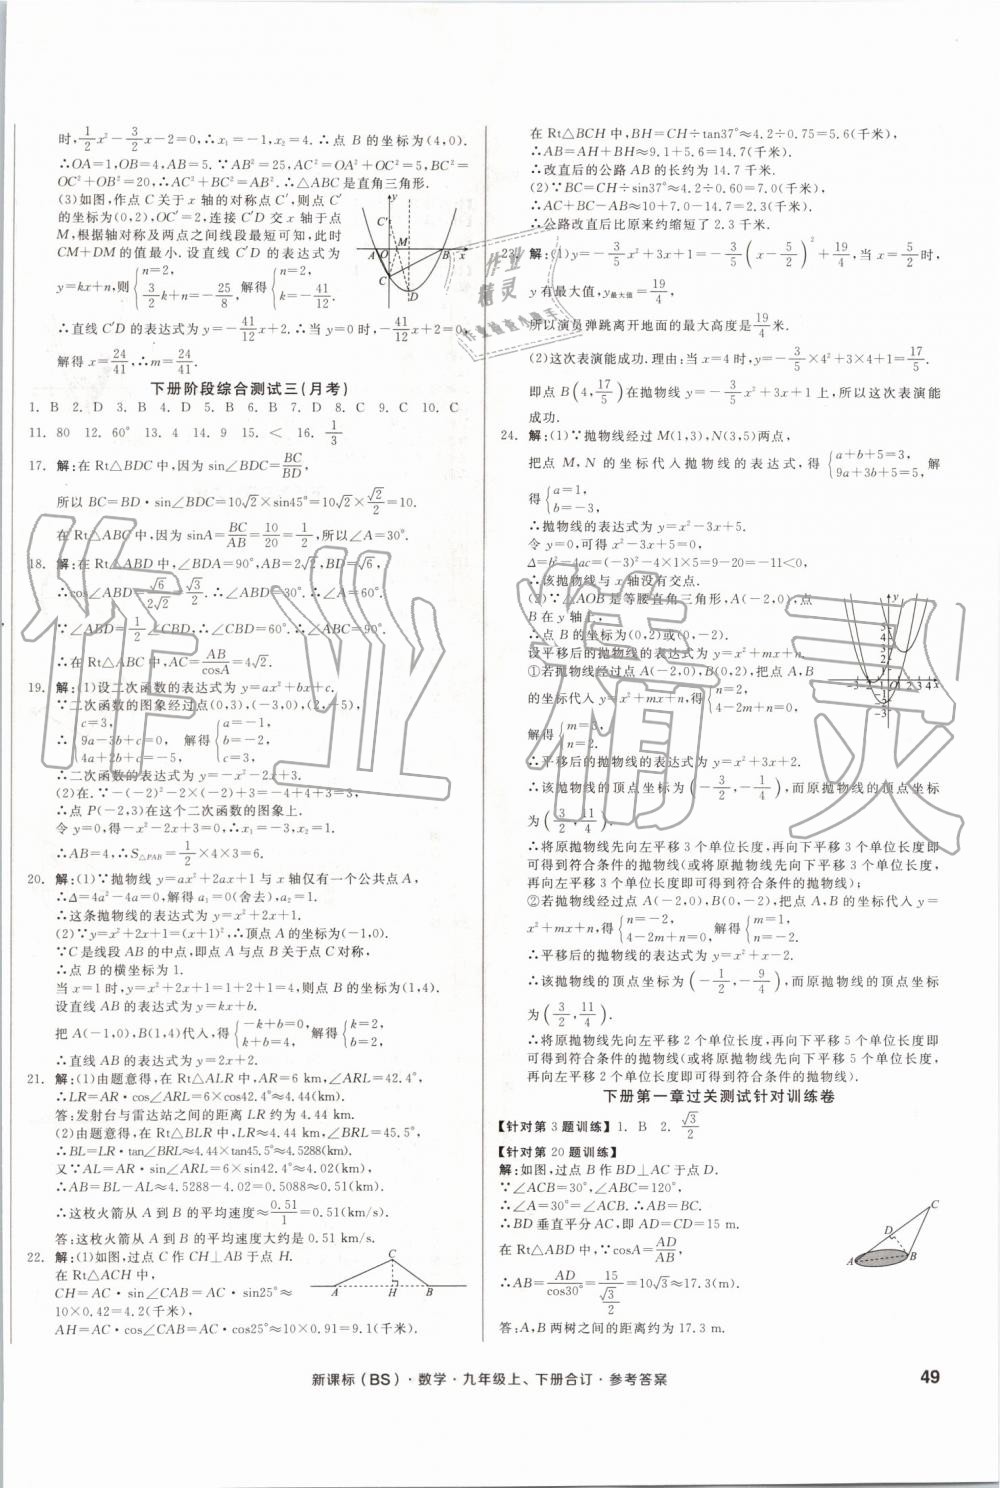 时,1/2x²-3/2x-2=0,∴x₁=-1,x₂=4.∴点 B 的坐标为(4,0).
∴OA=1,OB=4,AB=5.∵AB²=25,AC²=OA²+OC²=5,BC²=
OC²+OB²=20,∴AC²+BC²=AB².∴△ABC是直角三角形.
(3)如图,作点 C 关于 x 轴的对称点C′,则点 C′
的坐标为(0,2),OC′=2,连接 C′D 交 x 轴于点
M,根据轴对称及两点之间线段最短可知,此时
CM+DM 的值最小.设直线 C′D 的表达式为
y=kx+n,则{n=2, 3/2k+n=-25/8, 解得{n=2, k=-41/12.
∴直线 C′D 的表达式为 y=-41/12x+2.∴当 y=0时,-41/12x+2=0,
解得 x=24/41,∴m=24/41.
下册阶段综合测试三(月考)
1. B 2. D 3. B 4. D 5. B 6. B 7. D 8. C 9. C 10. C
11. 80 12. 60° 13. 4 14. 9 15. < 16. 1/3
17. 解:在 Rt△BDC 中,因为 sin∠BDC=BC/BD,
所以 BC=BD·sin∠BDC=10√2×sin45°=10√2×√2/2=10.
在 Rt△ABC 中,因为 sinA=BC/AB=10/20=1/2,所以∠A=30°.
18. 解:在 Rt△ABD 中,∠BDA=90°,AB=2√2,BD=√6,
∴cos∠ABD=√6/2√2=√3/2.∴∠ABD=30°.∴∠A=60°.
∵∠ABD=1/2∠CBD,∴∠CBD=60°.∴∠ABC=90°.
∴在 Rt△ABC 中,AC=AB/cosA=4√2.
19. 解:(1)设二次函数的表达式为 y=ax²+bx+c.
∵二次函数的图象经过点(0,3),(-3,0),(2,-5),
∴{c=3, 9a-3b+c=0, 4a+2b+c=-5, 解得{a=-1, b=-2, c=3,
∴二次函数的表达式为 y=-x²-2x+3.
(2)在.∵-(-2)²-2×(-2)+3=-4+4+3=3,
∴点 P(-2,3)在这个二次函数的图象上.
令 y=0,得-x²-2x+3=0,∴x₁=-3,x₂=1.
∴AB=4,∴S△PAB=1/2×4×3=6.
20. 解:(1)∵抛物线 y=ax²+2ax+1 与 x 轴仅有一个公共点 A,
∴Δ=4a²-4a=0,解得 a₁=0(舍去),a₂=1.
∴这条抛物线的表达式为 y=x²+2x+1.
(2)∵y=x²+2x+1=(x+1)²,∴顶点 A 的坐标为(-1,0).
∵C 是线段 AB 的中点,即点 A 与点 B 关于点 C 对称,
∴点 B 的横坐标为 1.
当 x=1 时,y=x²+2x+1=1+2+1=4,则点 B 的坐标为(1,4).
设直线 AB 的表达式为 y=kx+b.
把 A(-1,0),B(1,4)代入,得{-k+b=0, k+b=4, 解得{k=2, b=2,
∴直线 AB 的表达式为 y=2x+2.
21. 解:(1)由题意得,在 Rt△ALR 中,AR=6 km,∠ARL=42.4°,
∴LR=AR·cos∠ARL=6×cos42.4°≈4.44(km).
答:发射台与雷达站之间的距离 LR 约为 4.44 km.
(2)由题意得,在 Rt△BLR 中,LR=4.44 km,∠BRL=45.5°,
∴BL=LR·tan∠BRL≈4.44×tan45.5°≈4.5288(km).
又∵AL=AR·sin∠ARL=6×sin42.4°≈4.02(km),
∴AB=BL-AL≈4.5288-4.02=0.5088≈0.51(km).
∴这枚火箭从 A 到 B 的平均速度≈0.51/1=0.51(km/s).
答:这枚火箭从 A 到 B 的平均速度大约是 0.51 km/s.
22. 解:(1)如图,过点 C 作 CH⊥AB 于点 H.
在 Rt△ACH 中,
CH=AC·sin∠CAB=AC·sin25°≈
10×0.42=4.2(千米),
AH=AC·cos∠CAB=AC·cos25°≈10×0.91=9.1(千米).
在 Rt△BCH 中,BH=CH÷tan37°≈4.2÷0.75=5.6(千米),
∴AB=AH+BH≈9.1+5.6=14.7(千米).
∴改直后的公路 AB 的长约为 14.7 千米.
(2)∵BC=CH÷sin37°≈4.2÷0.60=7.0(千米),
∴AC+BC-AB≈10+7.0-14.7=2.3(千米).
∴公路改直后比原来约缩短了 2.3 千米.
23. 解:(1)y=-3/5x²+3x+1=-3/5(x-5/2)²+19/4,当 x=5/2时,
y 有最大值,y最大值=19/4,
所以演员弹跳离开地面的最大高度是19/4米.
(2)这次表演能成功.理由:当 x=4时,y=-3/5×4²+3×4+1=17/5.
即点 B(4,17/5)在抛物线 y=-3/5x²+3x+1 上,所以这次表演能
成功.
24. 解:(1)∵抛物线经过 M(1,3),N(3,5)两点,
把点 M,N 的坐标代入抛物线的表达式,得{a+b+5=3, 9a+3b+5=5, 解
得{a=1, b=-3,
∴抛物线的表达式为 y=x²-3x+5.
令 y=0,可得 x²-3x+5=0,
Δ=b²-4ac=(-3)²-4×1×5=9-20=-11<0,
∴该抛物线与 x 轴没有交点.
(2)∵△AOB 是等腰直角三角形,A(-2,0),点
B 在 y 轴上,
∴点 B 的坐标为(0,2)或(0,-2).
设平移后的抛物线的表达式为 y=x²+mx+n.
①若抛物线经过点 A(-2,0),B(0,2),把点 A,B
的坐标代入 y=x²+mx+n,得{n=2, 4-2m+n=0,
解得{m=3, n=2.
∴平移后的抛物线的表达式为 y=x²+3x+2.
∴该抛物线的顶点坐标为(-3/2,-1/4),而原抛物线的顶点坐标
为(3/2,11/4),
∴将原抛物线先向左平移 3 个单位长度,再向下平移 3 个单位长度即
可得到符合条件的抛物线(或将原抛物线先向下平移 3 个单位长度,
再向左平移 3 个单位长度即可得到符合条件的抛物线);
②若抛物线经过点 A(-2,0),B(0,-2),把点 A,B 的坐标代入 y=
x²+mx+n,得{n=-2, 4-2m+n=0, 解得{m=1, n=-2.
∴平移后的抛物线的表达式为 y=x²+x-2.
∴该抛物线的顶点坐标为(-1/2,-9/4),而原抛物线的顶点坐标
为(3/2,11/4),
∴将原抛物线先向左平移 2 个单位长度,再向下平移 5 个单位长度即
可得到符合条件的抛物线(或将原抛物线先向下平移 5 个单位长度,
再向左平移 2 个单位长度即可得到符合条件的抛物线).
下册第一章过关测试针对训练卷
【针对第 3 题训练】1. B 2. √3/2
【针对第 20 题训练】
解:如图,过点 B 作 BD⊥AC 于点 D.
∵∠ACB=30°,∠ABC=120°,
∴∠A=30°=∠ACB.∴AB=BC.
∴BD 垂直平分 AC,即 AD=CD=15 m.
在 Rt△ABD 中,∵cosA=AD/AB,
∴AB=AD/cos30°=15/(√3/2)=10√3≈17.3(m).
答:A,B 两树之间的距离约为 17.3 m.
新课标(BS)·数学·九年级上、下册合订·参考答案
49
作业精灵